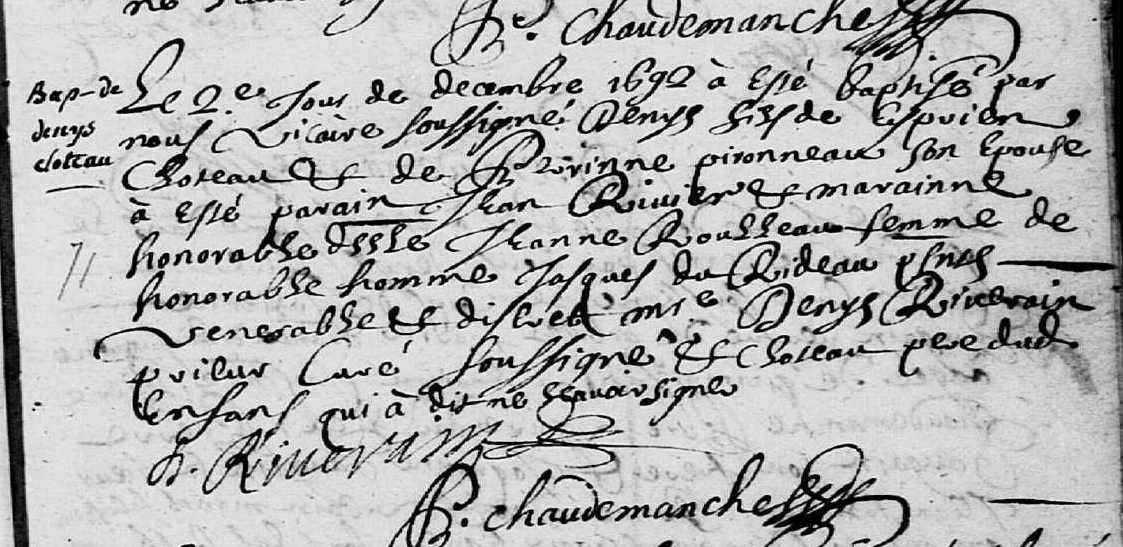 P. Chaudemanche
Bap. de
denys
Choteau
Le 2.e Jour de decembre 1692 à esté baptisé par
nous Vicaire soussigné Denys fils de Cyprien
Choteau & de Perrinne pironneau son Epouse
à esté parain Jean Rivier & marainne
honorable Jeanne Rousseau femme de
honorable homme Jasques du Rideau pnts
Venerable & discret mre Denys Riverain
prieur Curé soussigné & Choteau pere dud
Enfant qui à dit ne scavoir signer
D. Riverain
P. Chaudemanche